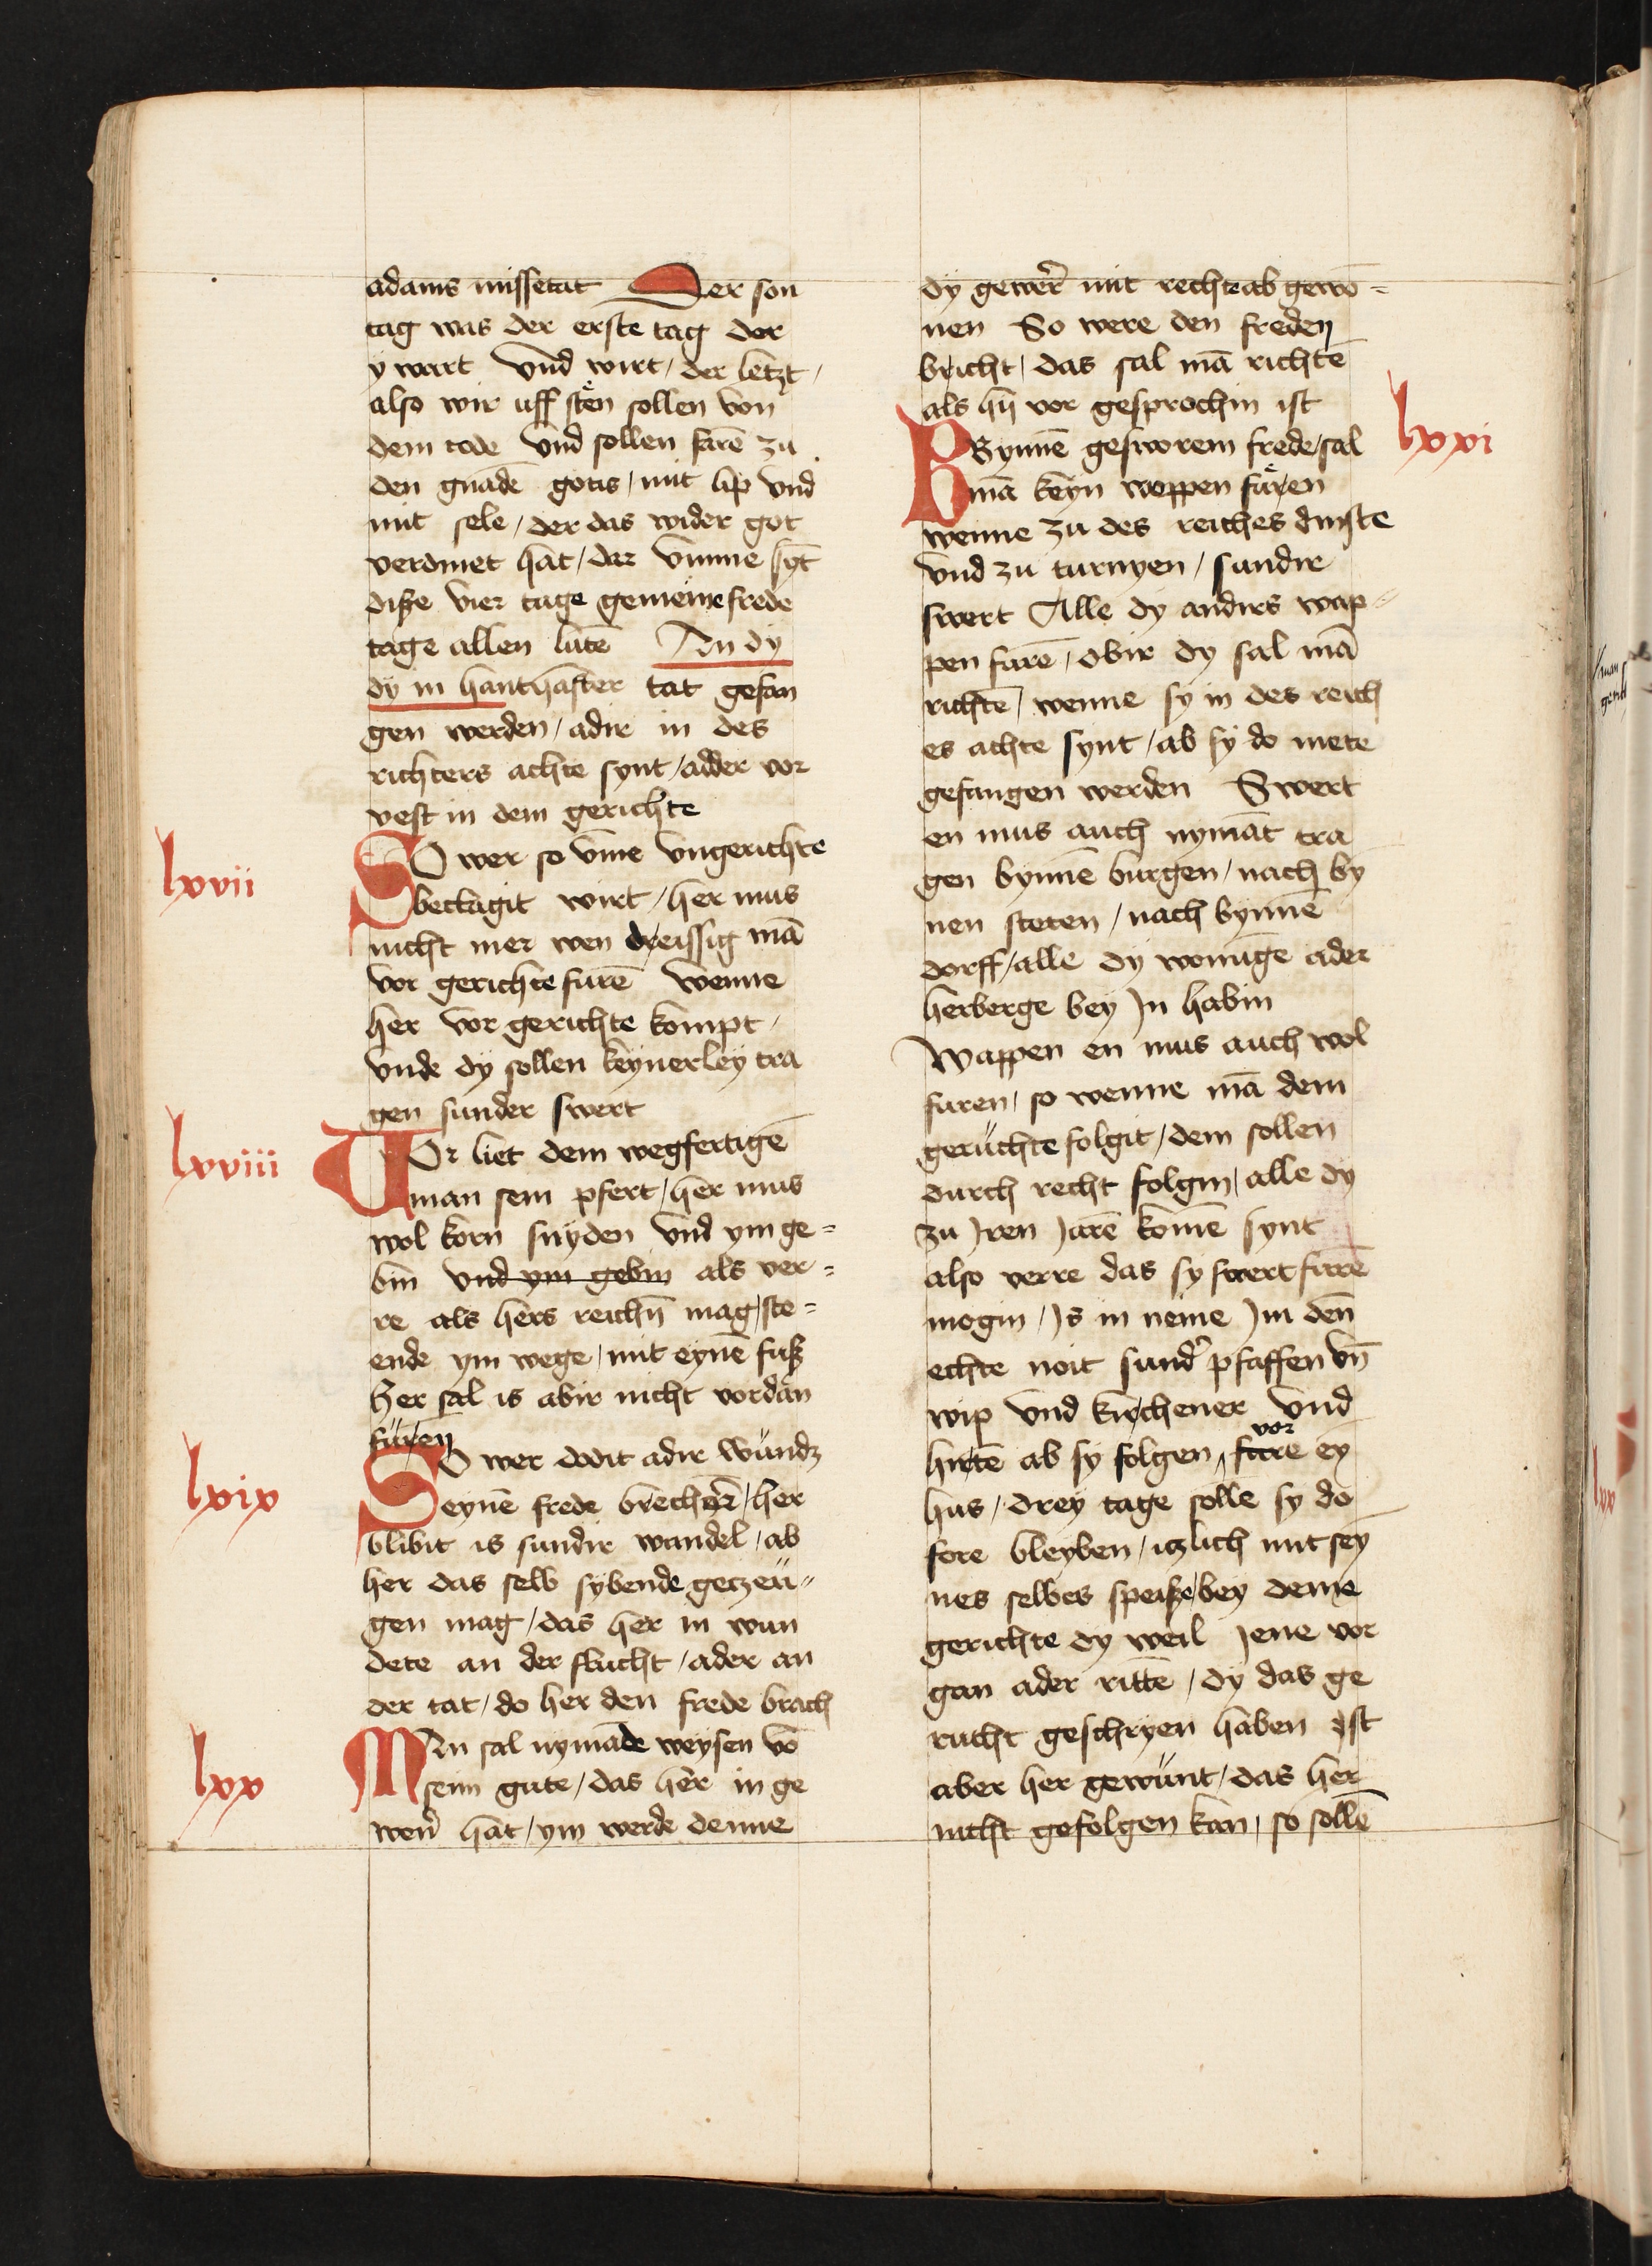 adams missetat Der son
tag was der erste tag der
y wart vnd wirt / der letzt /
also wir uff sten sollen von
dem tode vnd sollen farē zu
den gnadē gotis / mit lip vnd
mit sele / der das wider got
verdinet hat / dar vmme syt
diße vier tage gemeine frede
tage allen lutē An dy
dy in hanthafter tat gefan
gen werden / adir in des
richters achte synt / adder vor
vest in dem gerichte
lxvii
SO wer so vme vngerichte
beclagit wirt / her mus
nicht mer wen dreissig mā
vor gerichte furē wenne
her vor gerichte kompt /
vnde dy sollen keynerley tra
gen sunder swert
lxviii
Vor liet dem wegfertigē
man sein pfert / her mus
wol korn snyden vnd ym ge=
bin vnd ym gebin als ver=
re als hers reichn̄ mag / ste=
ende ym wege / mit eynē fuß
Her sal is abir nicht vordan
füren
lxix
SO wer dodit adir wundz
eynē frede brecher / her
blibit is sundir wandel / ab
her das selb sybende getzeu=
gen mag / das her in wun
dete an der flucht / ader an
der tat / do her den frede brach
lxx
Man sal nymāde weysen vō
seim gute / das her in ge
wer̄ hat / ym werde denne
dy gewer̄ mit rechte ab gewō=
nen So were den freden
bricht / das sal mā richtē
als hy vor gesprochin ist
lxxi
BBynnē gesworem frede / sal
mā keyn woppen füren
wenne zu des reiches dinste
vnd zu turnyen / sundir
swert Alle dy andirs wap=
pen furē / obir dy sal mā
richtē / wenne sy in des reich
es achte synt / ab sy do mete
gefangen werden Swert
en mus auch nymāt tra
gen bynnē burgen / nach by
nen steten / nach bynnē
dorff / alle dy wonūge ader
herberge bey Jn habin
Wappen en mus auch wol
furen / so wenne mā dem
gerüchte folgit / dem sollen
durch recht folgin / alle dy
zu Jren Jarē komē synt
also verre das sy swert furē
mogin / Js in neme Jm den̄
echte noit sund' pfaffen vn̄
wip vnd kirchener vnd
hirtē ab sy folgen / fure vor ey
hus / drey tage sollē sy do
fore bleyben / itzlich mit sey
nes selbes speiße / bey deme
gerichte dy weil Jene vor
gan ader rittē / dy das ge
rucht geschryen haben Jst
aber her gewunt / das her
nicht gefolgen kan / so sollē